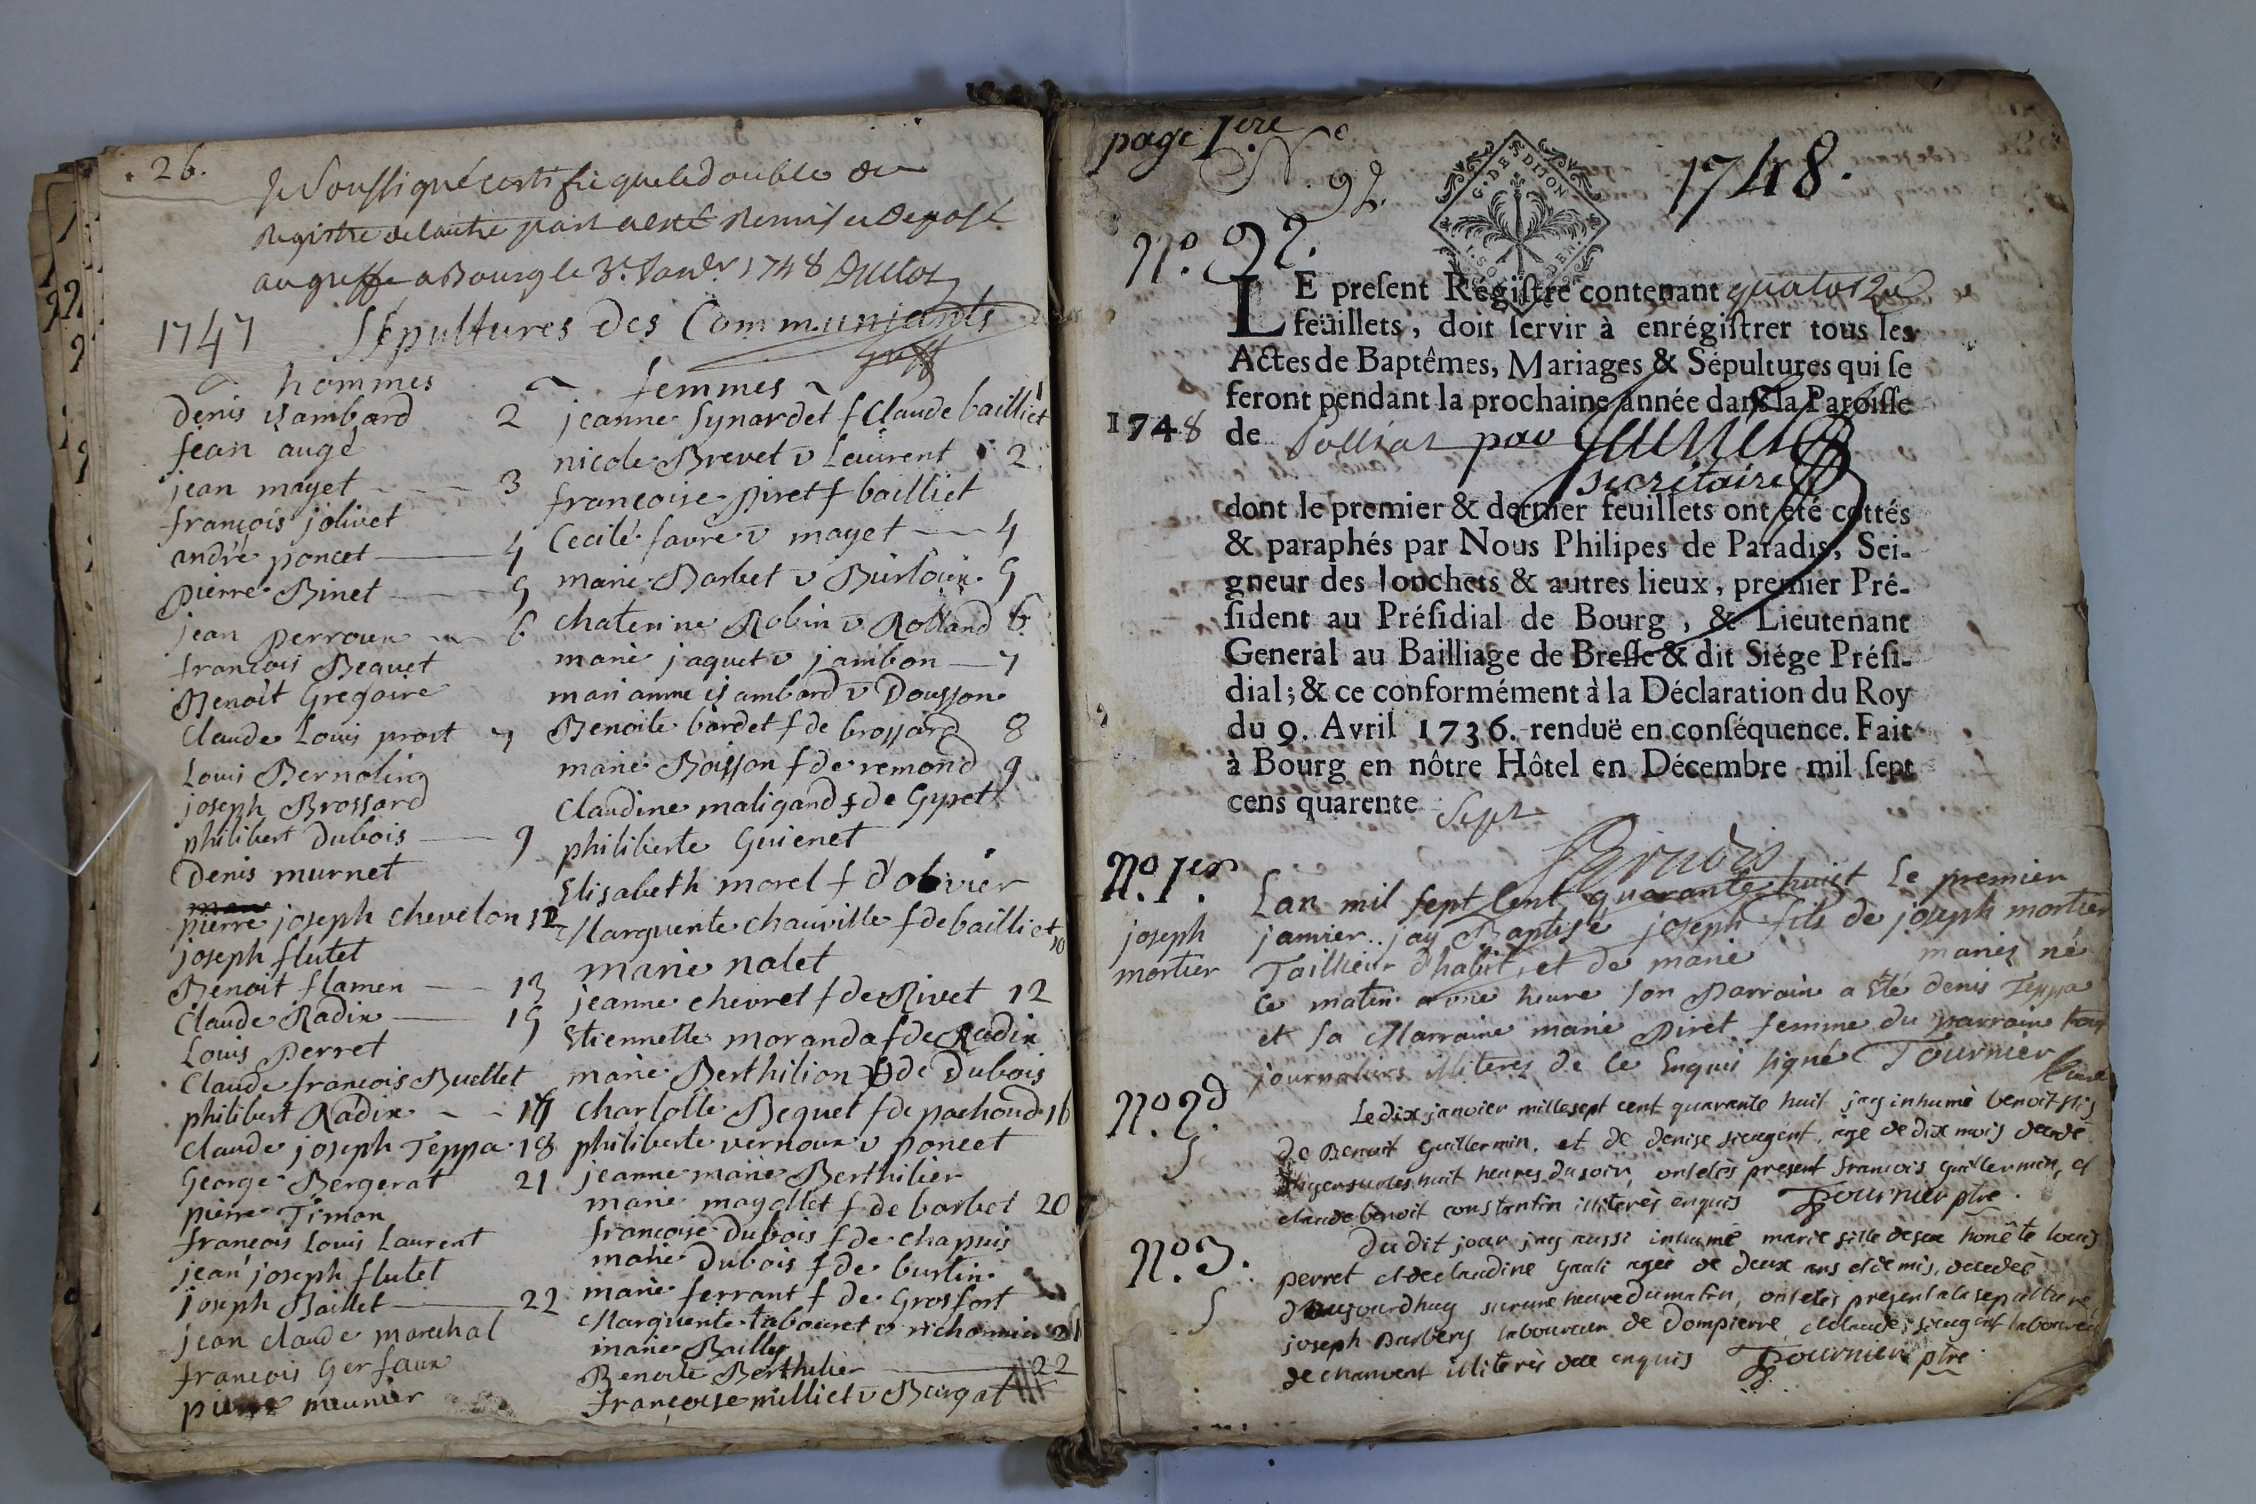 26.
Je Soussigné certifie que le double du
Registre de lautre part a esté Remis et Deposé
au greffe a Bourg le 3e. Janvr 1748
1747 Sépultures des Communiants
hommes
denis isambard 2
jean augé
jean mayet 3
françois jolivet
andré poncet 4
pierre Binet 5
jean perroux 6
francois Bequet
Benoit Gregoire
Claude Louis prost 7
Louis Bernolin
joseph Brossard
philibert Dubois 9
Denis murnet
pierre joseph chevelon 12
joseph flutet
Benoit flamen 13
Claude Radix 15
Louis Perret
Claude francois Buellet
philibert Radix
Claude joseph Teppa 18
George Bergerat 21
pierre Timon
francois Louis Laurent
jean joseph flutet
joseph Baillet 22
jean claude marechal
francois Gerfaux
pierre meunier
femmes
jeanne Synardet f Claude bailliet 1
nicole Brevet v Laurent 2
francoise Piret f bailliet
Cecile favre v mayet 4
marie Barbet v Burloux 5
chaterine Robin v Rolland 6
marie jaquet v jambon 7
marianne isambard v Dousson
Benoite bardet f de brossard 8
marie Boisson f de remond 9
Claudine maligand f de Gyret
philiberte Guienet
Elisabeth morel f d'olivier
Marguerite chauville f de bailliet 10
marie nalet
jeanne chevret f de Rivet 12
Etiennette moranda f de Radix
marie Berthilion f de Dubois
Charlotte Bequet f de pachoud 16
philiberte vernoux v poncet
jeanne marie Berthilier
marie mayollet f de barbet 20
francoise Dubois f de chapuis
marie Dubois f de burlin
marie ferrant f de Grosfort
Marguerite tabouret v richonnier 21
marie Bailly
Benoite Berthilier 22
françoise milliet v Burgat
page 1ere
No 92.
1748.
G. DE DIJON
No. 92.
LE present Régistre contenant quatorze
feüillets, doit servir à enrégistrer tous les
Actes de Baptêmes, Mariages & Sépultures qui se
feront pendant la prochaine année dans la Paroisse
1748 de Polliat par
secrétaire
dont le premier & dernier feuillets ont été cottés
& paraphés par Nous Philipes de Paradis, Sei-
gneur des Jonchets & autres lieux, premier Pré-
sident au Présidial de Bourg, & Lieutenant
General au Bailliage de Bresse & dit Siége Prési-
dial; & ce conformément à la Déclaration du Roy
du 9. Avril 1736. renduë en conséquence. Fait
à Bourg en nôtre Hôtel en Décembre mil sept
cens quarente Sept
Paradis
No. 1er.
joseph
mortier
Lan mil sept Cent quarante huit Le premier
janvier jay Baptisé joseph fils de joseph mortier
Tailleur d'habit, et de marie mariez né
ce matin a une heure son Parrain a Eté denis Teppa
et sa Marraine marie Piret femme du parrain tous
journaliers illiteres de ce Enquis signé Tournier
Curé
No. 2d.
Le dix janvier mille sept cent quarante huit jay inhumé benoit fils
de Benoit Guillermin, et de denise sieugent, age de dix mois decede
hyer sur les huit heures du soir, ont etés present francois guillermin, et
claude benoit constantin illiterés enquis Tournier ptre.
No. 3.
Du dit jour jay aussi inhumé marie fille de feu honête louis
perret et de claudine gauli agée de deux ans et demis, decedée
d'aujourdhuy sur une heure du matin, ont etés present a la sepulture,
joseph Barbery laboureur de Dompierre, et claude sieugent laboureur
de chanvent illiterés de ce enquis Tournier ptre.